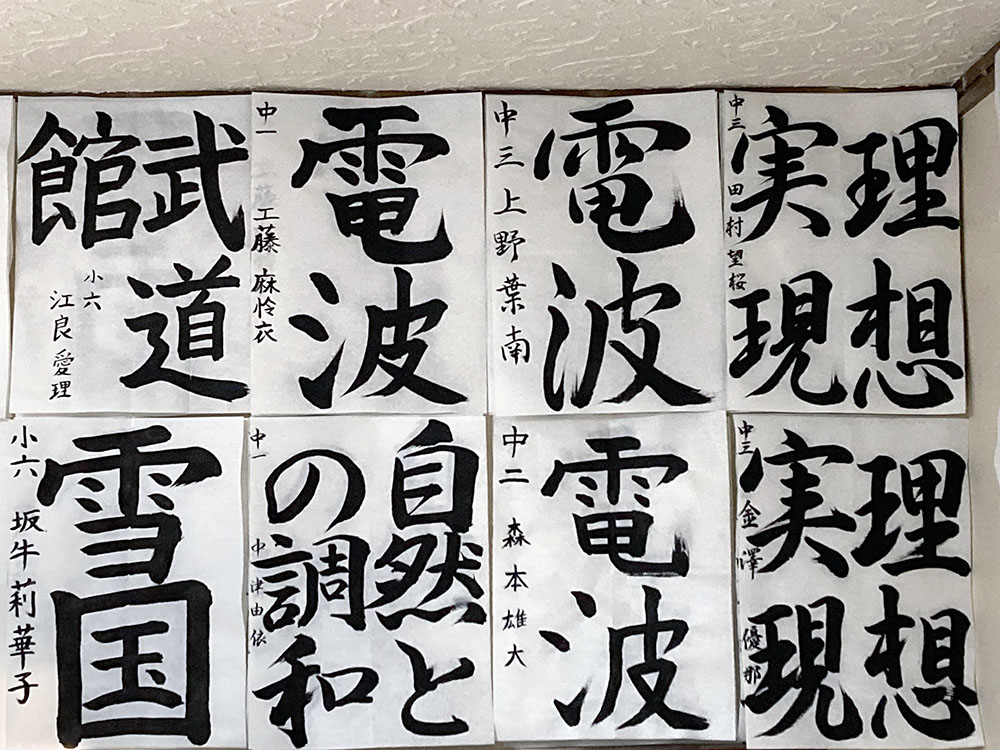 武道
館
小六
江良愛理
電波
中一
工藤麻怜衣
電波
中三上野葉南
理想
実現
中三田村望桜
雪国
小六
坂牛莉華子
自然と
の調和
中一
中津由依
電波
中二
森本雄大
理想
実現
中三
金澤優那